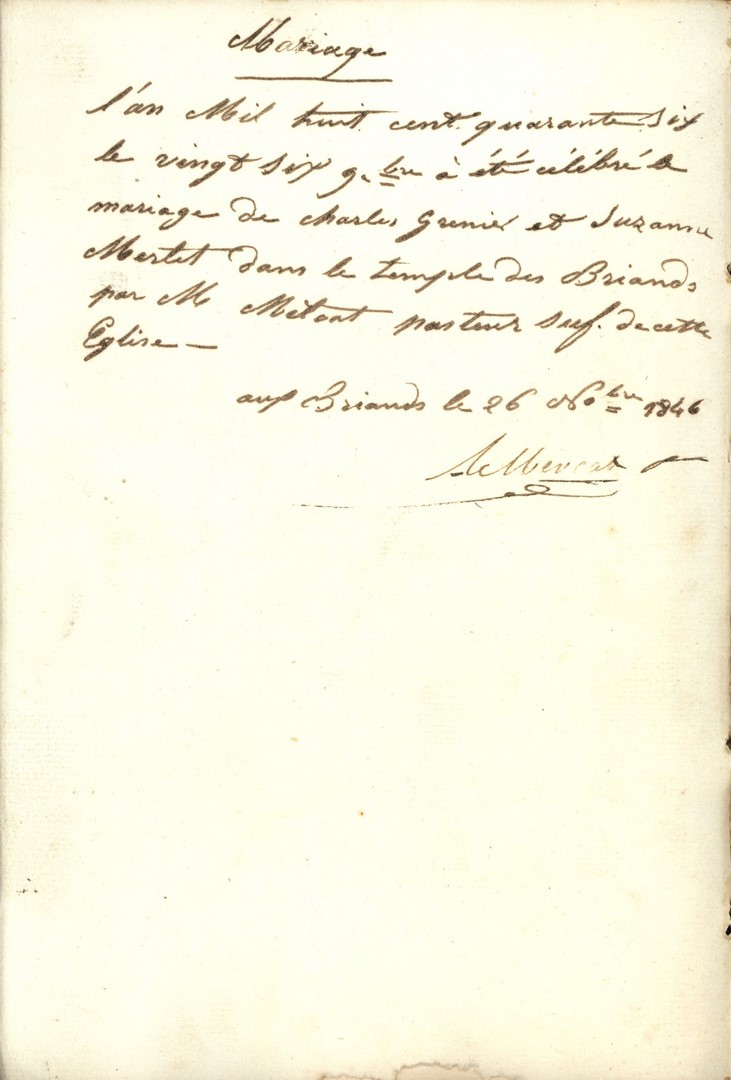 Mariage
l'an Mil huit cent quarante six
le vingt six 9.bre à été célébré le
mariage de charles Grenier et Suzanne
Merlet dans le temple des Briands
par M pasteur suf. de cette
Eglise —
aux Briands le 26 Nobre 1846